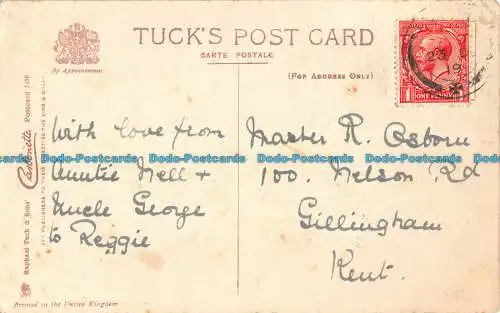 TUCK'S POST CARD
CARTE POSTALE
By Appointment
(FOR ADDRESS ONLY)
23
19
1
With love from
Auntie Nell +
Uncle George
to Reggie
Master R. Osborn
100. Nelson Rd
Gillingham
Kent.
Dodo-Postcards Dodo-Postcards Dodo-Postcards Dodo-Postcards
Raphael Tuck & Sons'
Postcard
Printed in the United Kingdom